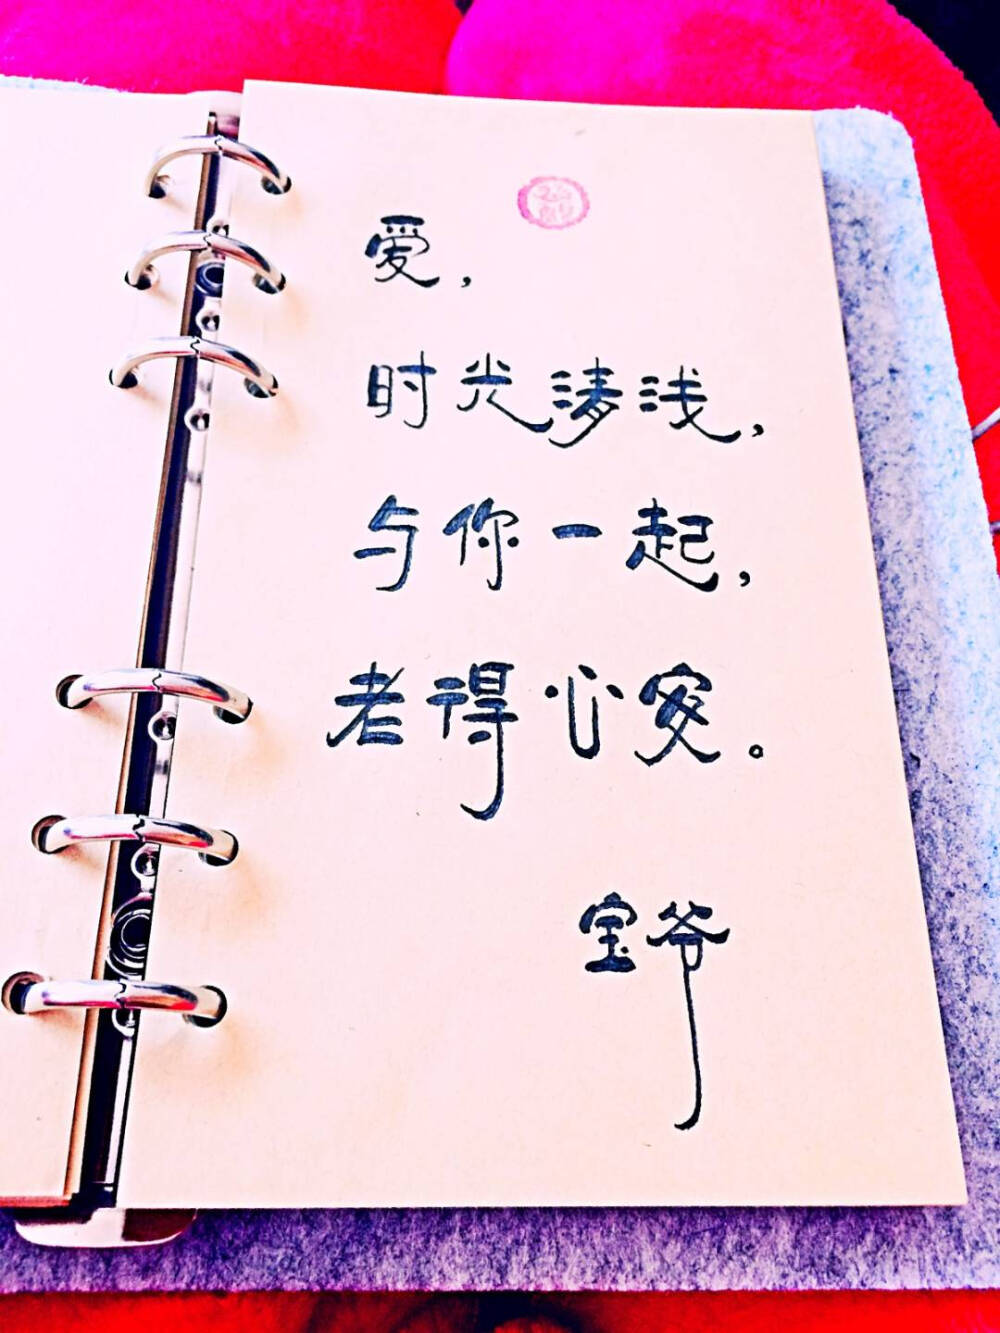 爱,
时光清浅,
与你一起,
老得心安。
宝爷